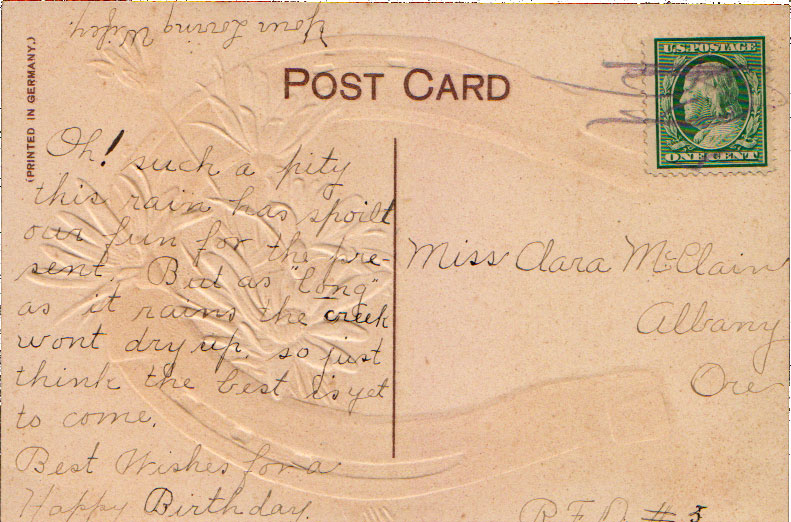 (PRINTED IN GERMANY.)
Your Loving Wifey.
POST CARD
U.S. POSTAGE
ONE CENT
Oh! such a pity
this rain has spoilt
our fun for the pre-
sent. But as "long"
as it rains the creek
wont dry up. so just
think the best is yet
to come.
Best Wishes for a
Happy Birthday.
Miss Clara McClain
Albany
Ore
R.F.D. # 5